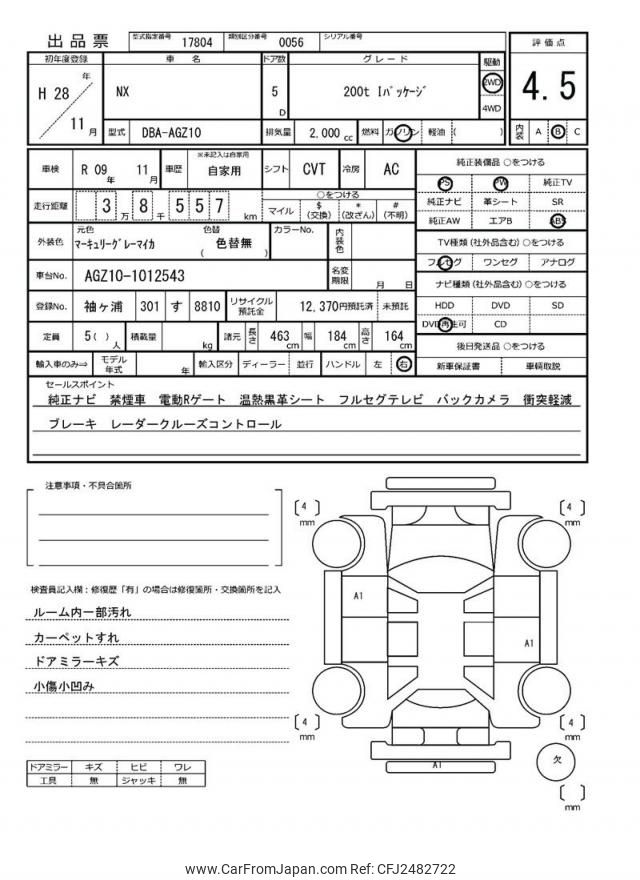 出品票
型式指定番号 17804 類別区分番号 0056 シリアル番号
初年度登録 車名 ドア数 グレード 駆動 評価点
H 28 年 11 月 NX 5 D 200t Iパッケージ 2WD 4WD 4.5
型式 DBA-AGZ10 排気量 2,000 cc 燃料 ガソリン 軽油 ( ) 内装 A B C
車検 R 09 年 11 月 車歴 ※未記入は自家用 自家用 シフト CVT 冷房 AC
純正装備品 ○をつける
PS PW 純正TV
純正ナビ 革シート SR
純正AW エアB ABS
走行距離 3 万 8 千 5 5 7 km
○をつける
マイル $ (交換) * (改ざん) # (不明)
外装色 元色 マーキュリーグレーマイカ 色替 ( 色替無 ) カラーNo. 内装色
TV種類 (社外品含む) ○をつける
フルセグ ワンセグ アナログ
車台No. AGZ10-1012543 名変期限 月 日
ナビ種類 (社外品含む) ○をつける
HDD DVD SD
DVD再生可 CD
登録No. 袖ヶ浦 301 す 8810 リサイクル預託金 12,370円預託済 未預託
定員 5 ( ) 人 積載量 kg 諸元 長さ 463 cm 幅 184 cm 高さ 164 cm
後日発送品 ○をつける
新車保証書 車輌取説
輸入車のみ⇒ モデル年式 年 輸入区分 ディーラー 並行 ハンドル 左 右
セールスポイント
純正ナビ 禁煙車 電動Rゲート 温熱黒革シート フルセグテレビ バックカメラ 衝突軽減
ブレーキ レーダークルーズコントロール
注意事項・不具合箇所
検査員記入欄：修復歴「有」の場合は修復箇所・交換箇所を記入
ルーム内一部汚れ
カーペットすれ
ドアミラーキズ
小傷小凹み
ドアミラー キズ ヒビ ワレ
工具 無 ジャッキ 無
4 mm
4 mm
A1
A1
4 mm
4 mm
A1
欠
mm
www.CarFromJapan.com Ref: CFJ2482722